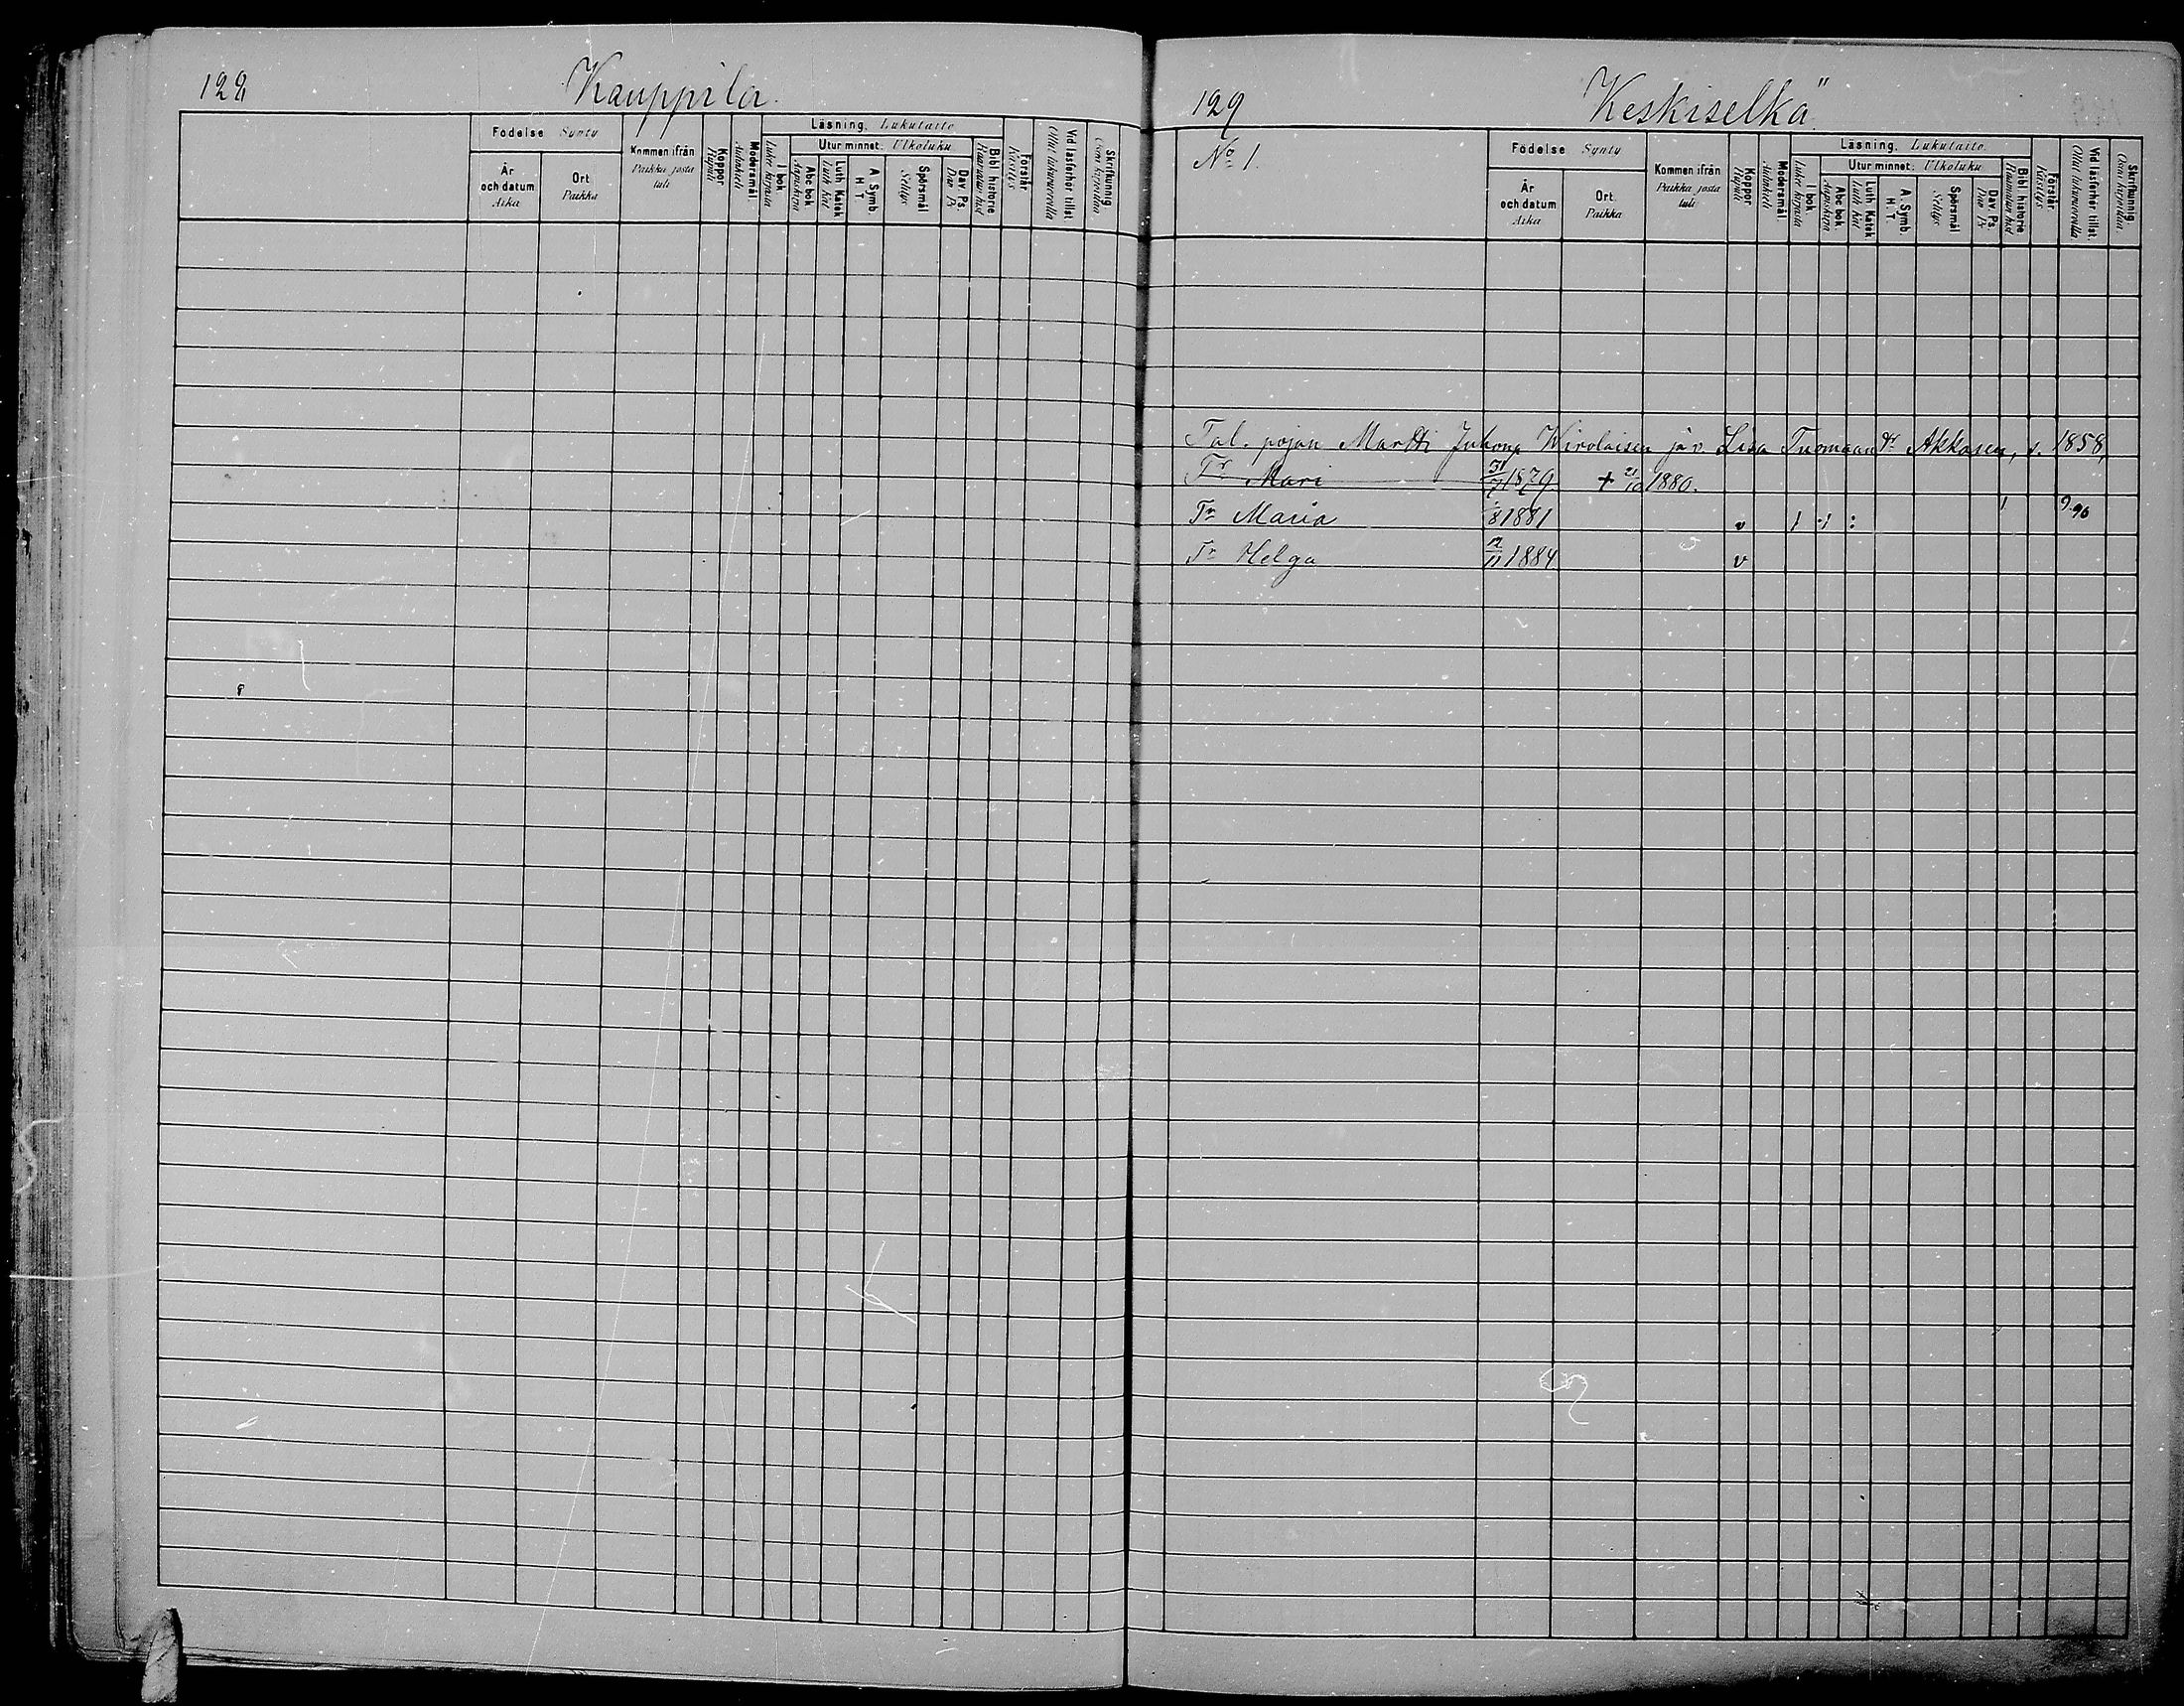 128
Kauppila.
Födelse Synty
Kommen ifrån Paikka josta tuli
Koppor Rupuli
Modersmål Äidinkieli
Läsning. Lukutaito
I bok. Lukee kirjasta
Utur minnet: Ulkoluku
År och datum Aika
Ort Paikka
Abc bok Aapiskirja
Luth. Katek. Luth. Kat.
A. Symb. H. T.
Spörsmål Selitys
Dav. Ps. Dav. Ps
Bibl. historie Raamatun hist
Förstår Käsitys
Vid läsförhör tillst. Ollut lukuvuorolla
Skrifkunnig Osaa kirjoittaa
129
Keskiselkä
No 1.
Födelse Synty
Kommen ifrån Paikka josta tuli
Koppor Rupuli
Modersmål Äidinkieli
Läsning. Lukutaito.
I bok. Lukee kirjasta
Utur minnet: Ulkoluku
År och datum Aika
Ort Paikka
Abc bok Aapiskirja
Luth. Katek. Luth. Kat
A. Symb. H. T.
Spörsmål Selitys
Dav. Ps. Dav. Ps
Bibl. historie Raamatun hist
Förstår. Käsitys
Vid läsförhör tillst. Ollut lukuvuorolla
Skrifkunnig. Osaa kirjoittaa.
Tal. pojan Martti Juhonp Wirolaisen jäv. Lisa Tuomaan tr Akkasen, s. 1858,
Tr Mari 31/7 1879 + 21/10 1880.
Tr Maria 8 1881 v 1 1 : 1 9 90
Tr Helga 12/11 1884 v